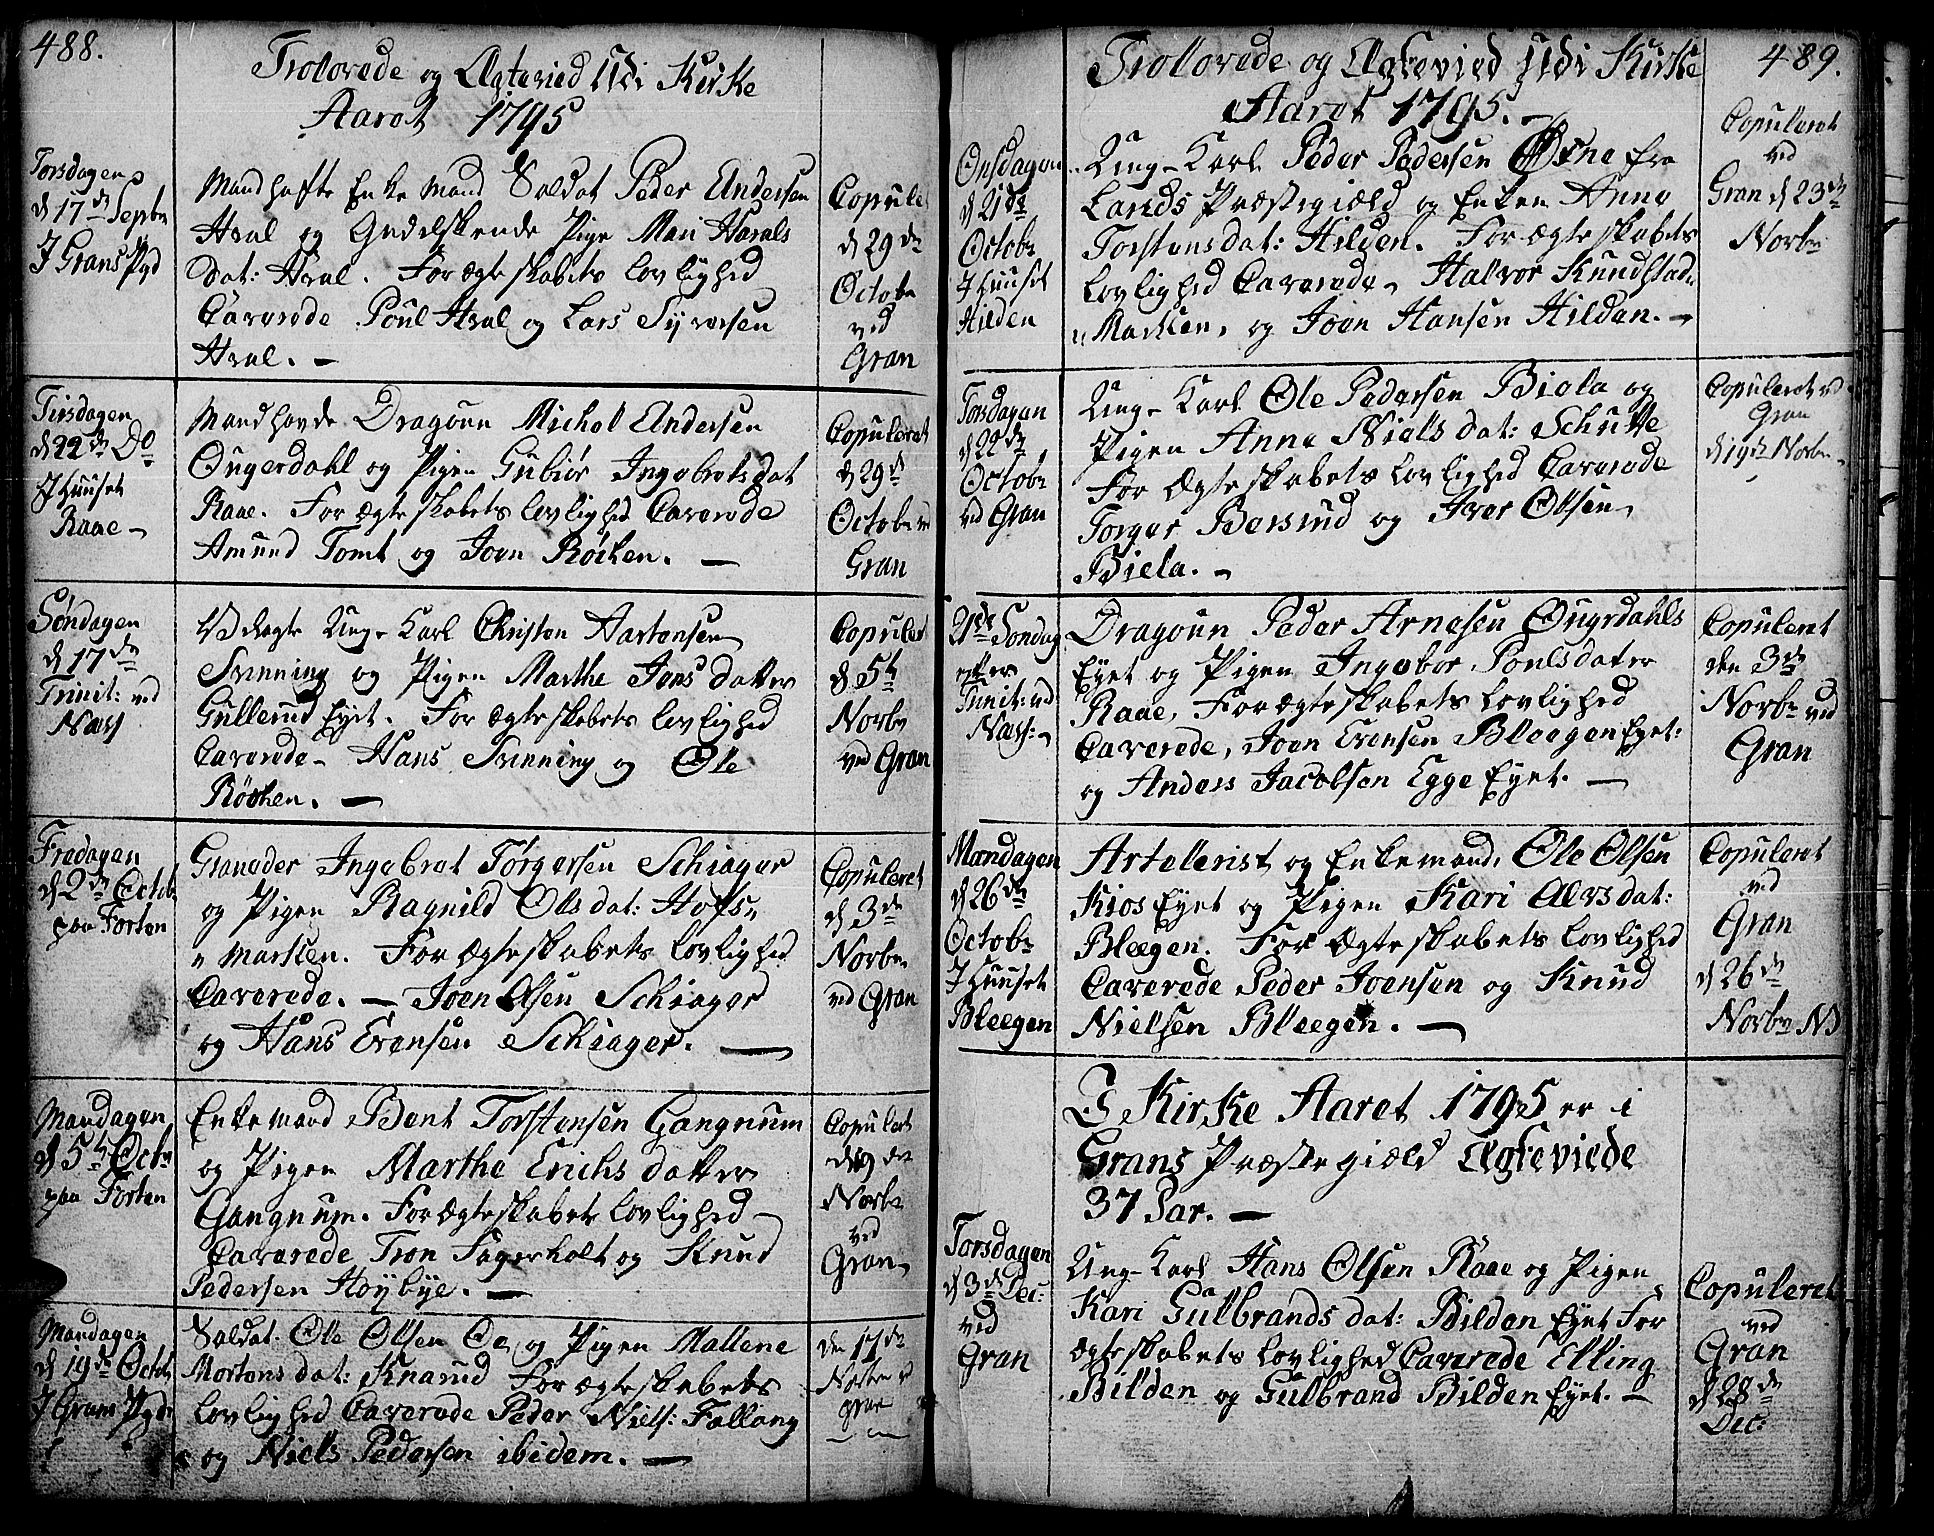 488.
Trolovede og Ægtevied Udi Kirke
Aaret 1795
Torsdagen
d 17de Septbr
J Grans Pgd
Mandhafte Enke Mand Soldat Peder Andersen
Hval og Gudelskende Pige Mari Haralds
dat: Hval. For ægteskabets lovlighed
Caverede Poul Hval og Lars Syversen
Hval. —
Copuleret
d 29de
Octobr
ved
Gran
Tirsdagen
d 22de Do
J Huuset
Raae —
Mandhavde Dragoun Michel Andersen
Ougerdahl og Pigen Gubiør Ingebretsdat
Raae. For ægteskabets lovlighed Caverede
Amund Tomt og Joen Røcken. —
Copuleret
d 29d
Octobr ved
Gran
Søndagen
d 17de
Trinit: ved
Næss
Ung Karl Christen Aastensen
Svinning og Pigen Marthe Jens datter
Gullerud Eyet. For ægteskabets lovlighed
Caverede — Hans Svinning og Ole
Røcken. —
Copuleret
d 5te
Novbr
ved Gran
Fredagen
d 2de Octob
paa Forten
Granader Ingebret Torgersen Schiager
og Pigen Ragnild Olsdat: Hofs„
„ Marken. For ægteskabets lovlighed
Caverede. — Joen Olsen Schiager
og Hans Evensen Schiager. —
Copuleret
d 3de
Novbr
ved Gran
Mandagen
d 5te Octbr
paa Forten
Enkemand Bent Torstensen Gangnum
og Pigen Marthe Erichs datter
Gangnum. For ægteskabets lovlighed
Caverede Tron Fagerholt og Knud
Pedersen Høybye. —
Copuleret
d 19de
Novbr
ved
Gran
Mandagen
d 19de Octob
J Grans Pgd
Soldat Ole Olsen Oe og Pigen Mallene
Mortens dat: Knarud For ægteskabets
lovlighed Caverede Peder Niels: Fallang
og Niels Pedersen ibidem. —
den 17de
Novbr ved
gran
489.
Trolovede og Ægtevied Udi Kirke
Aaret 1795. —
Onsdagen
d 21de
Octobr
J Huuset
Hilden
Ung-Karl Peder Pedersen Øxne fra
Lands Præstegiæld og Enken Anne
Torstensdat: Hilden. For ægteskabets
lovlighed Caverede — Halvor Kundstad„
„ Marken, og Joen Hansen Hilden. —
Copuleret
ved
Gran d 23de
Novbr
Torsdagen
d 22de
Octobr
ved Gran
Ung- Karl Ole Pedersen Biela og
Pigen Anne Niels dat: Schutte
For Ægteskabets lovlighed Caverede
Torger Bersrud og Iver Olsen
Biela. —
Copuleret ved
Gran
d 19de Novbr
21de Søndag
efter
Trinit: ved
Næss: —
Dragoun Peder Arnesen Ougrdahls
Eyet og Pigen Ingebor Poulsdater
Raae, For ægteskabets lovlighed
Caverede, Joen Evensen Bleegen Eyet:
og Anders Jacobsen Egge Eyet. —
Copuleret
den 3de
Novbr ved
Gran
Mandagen
d 26de
Octobr
J Huuset
Bleegen
Artellerist og Enkemand, Ole Olsen
Kios Eyet og Pigen Kari Alvsdat:
Bleegen. For Ægteskabets lovlighed
Caverede Peder Joensen og Knud
Nielsen Bleegen. —
Copuleret
ved
Gran
d 26de
Novbr
I Kirke Aaret 1795 er i
Grans Præstegiæld Ægteviede
37 Par. —
Torsdagen
d 3de Dec:
ved
Gran
Ung-Karl Hans Olsen Raae og Pigen
Kari Gulbrands dat: Bilden Eyet For
ægteskabets lovlighed Caverede Elling
Bilden og Gulbrand Bilden Eyet. —
Copuleret
ved
Gran
d 28de
Dec: